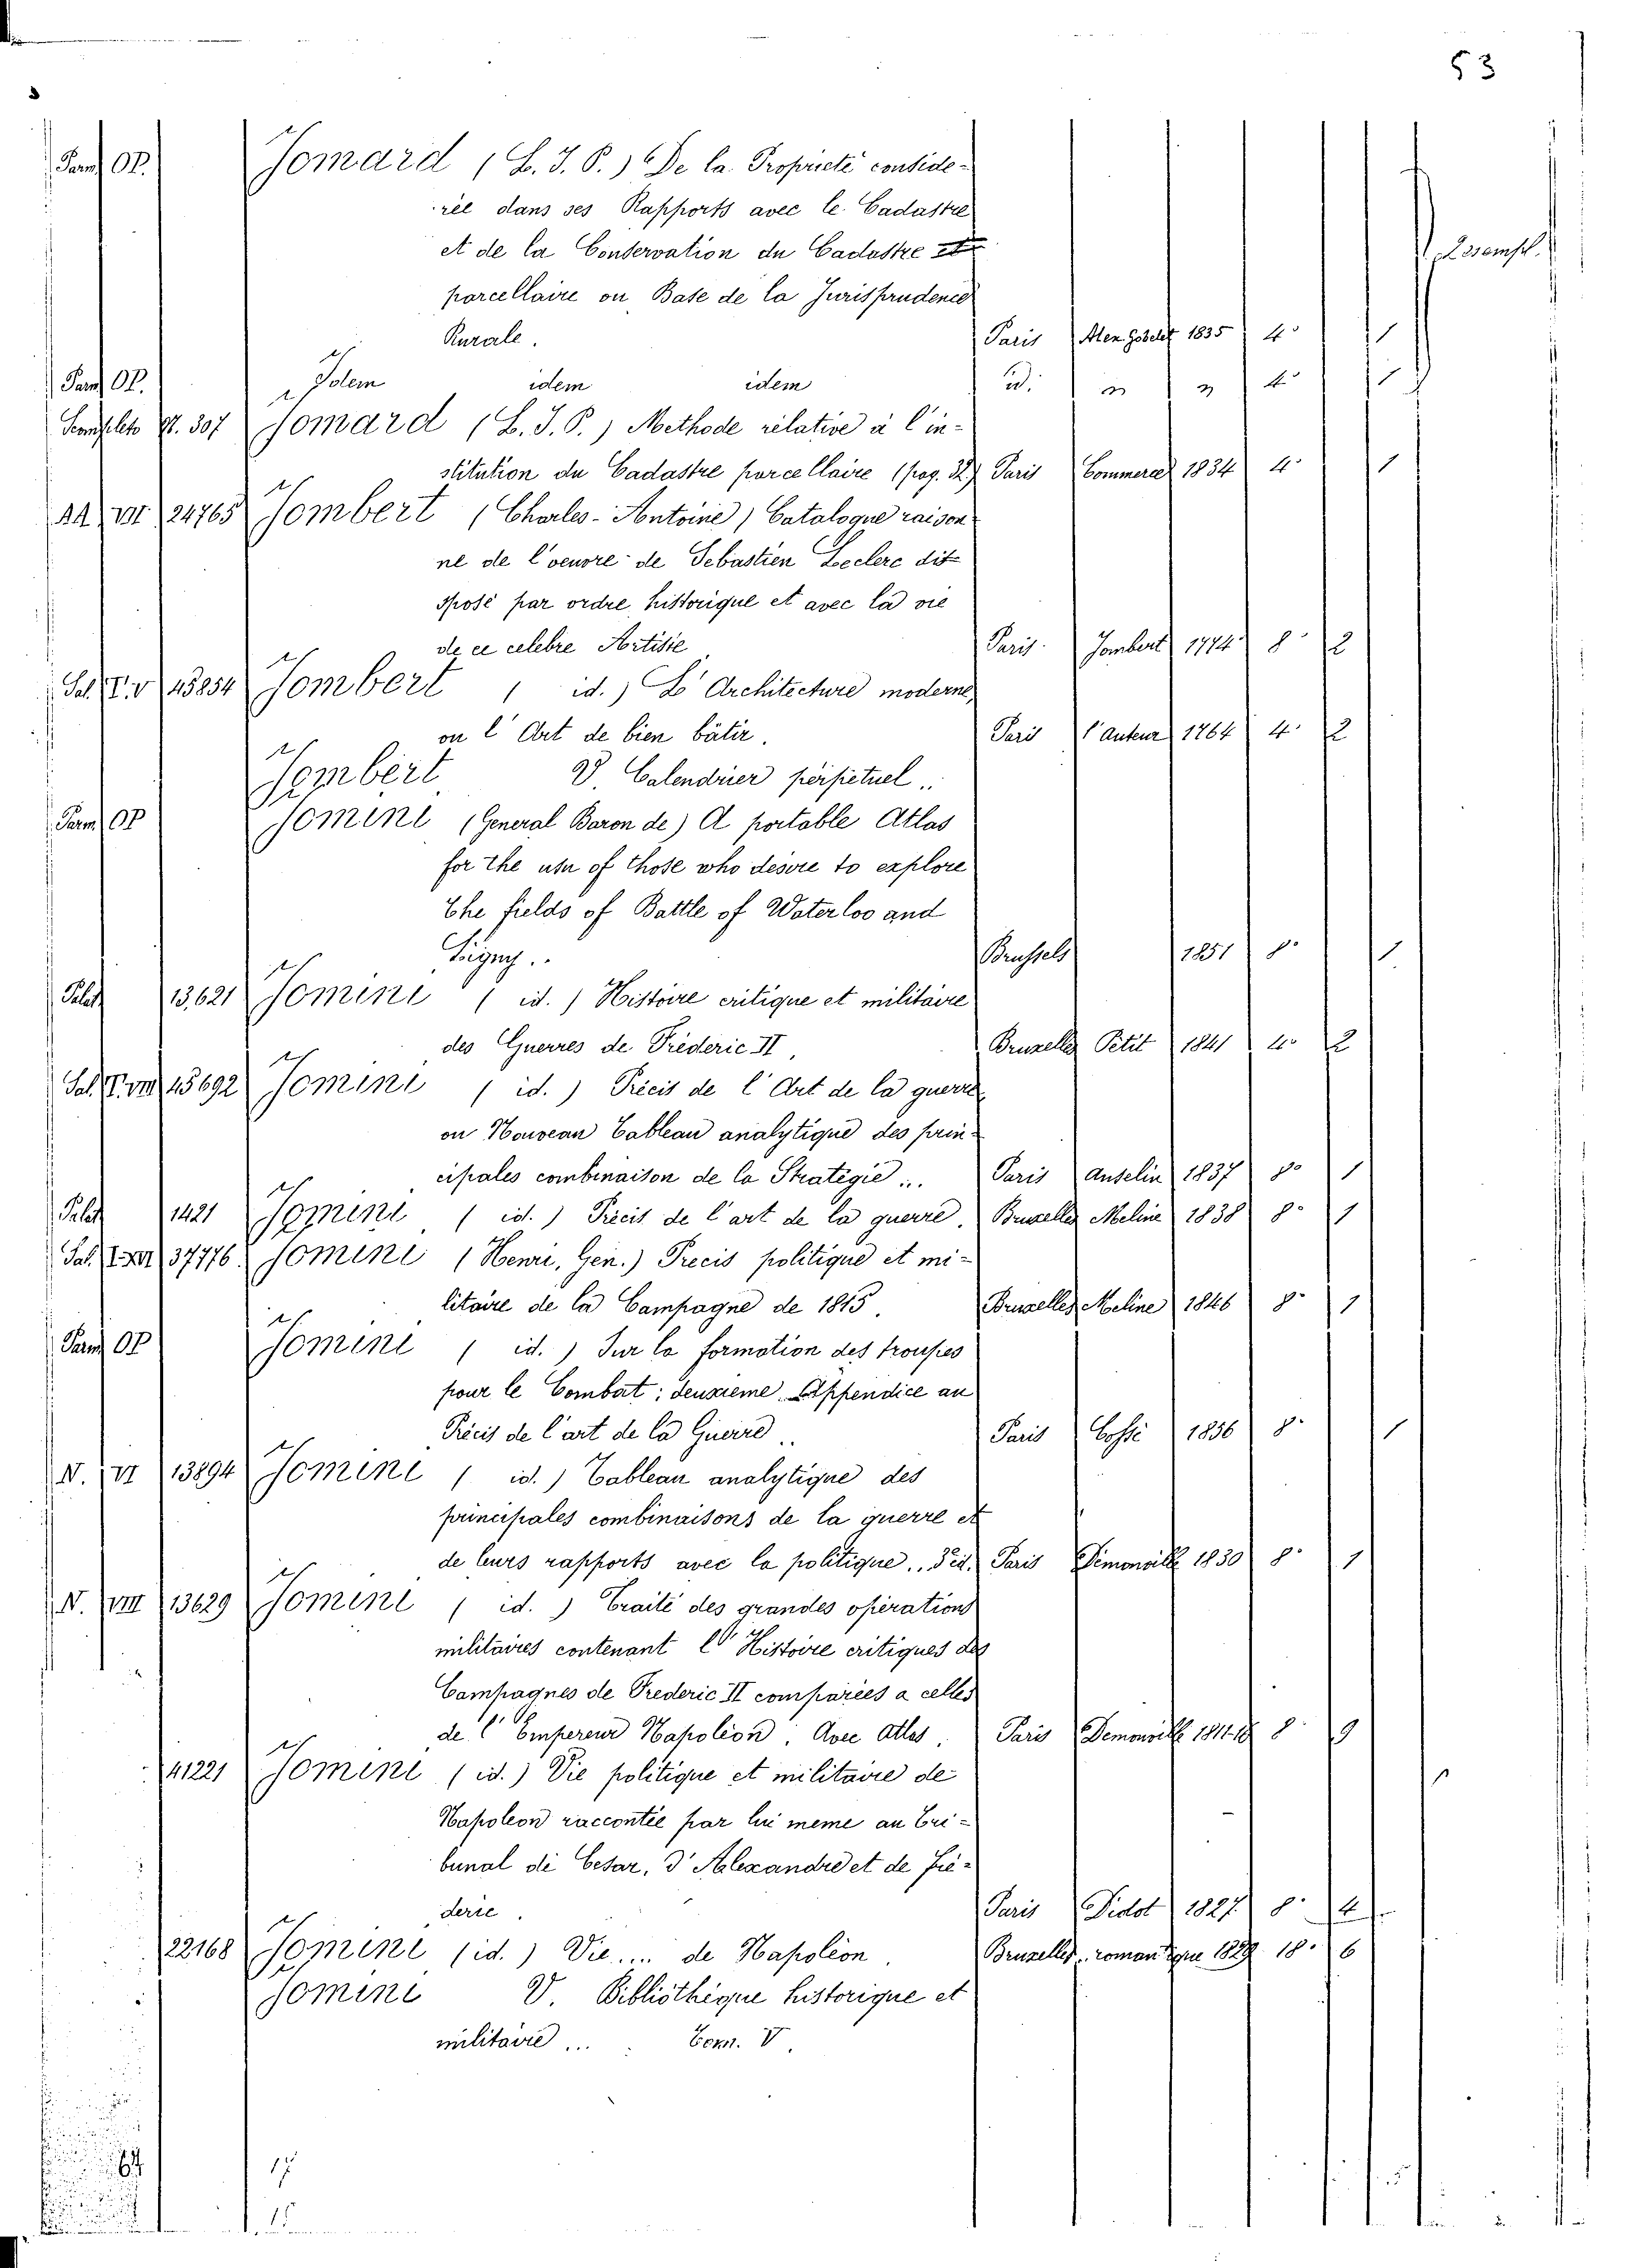 53
Parm OP. Jomard (L. J. P.) De la Propriété conside-
réé dans ses Rapports avec le Cadastre
et de la Conservation du Cadastre et
parcellaire ou Base de la Jurisprudence
Rurale. Paris 1835 4° 1
Parm OP. Idem idem idem id. " " 4° 1
307 Jomard (L. J. P.) Methode relative à l'in-
stitution du Cadastre parcellaire (pag. 32) Paris Commerce 1834 4° 1
AA VII 24765 Jombert (Charles-Antoine) Catalogue raison-
né de l'oeuvre de Sebastien Leclerc dis-
posé par ordre historique et avec la vie
de ce celebre Artiste Paris Jombert 1774 8° 2
Sal. T. V 45854 Jombert (id.) L'Architecture moderne,
ou l'Art de bien bâtir. Paris l'Auteur 1764 4° 2
Jombert V. Calendrier pérpetuel..
Parm OP Jomini (General Baron de) A portable Atlas
for the use of those who desire to explore
the fields of Battle of Waterloo and
Ligny.. Brussels 1851 8° 1
Palat 13,621 Jomini (id.) Histoire critique et militaire
des Guerres de Fréderic II, Bruxelles Petit 1841 4° 2
Sal. T. VIII 45692 Jomini (id.) Précis de l'Art de la guerre
ou Nouveau Tableau analytique des prin-
cipales combinaison de la Stratégie... Paris Anselin 1837 8° 1
Palat 1421 Jomini (id.) Précis de l'art de la guerre. Bruxelles Meline 1838 8° 1
Sal. T. XVI 37776. Jomini (Henri, Gen.) Precis politique et mi-
litaire de la Campagne de 1815. Bruxelles Meline 1846 8° 1
Parm OP Jomini (id.) Sur la formation des troupes
pour le Combat; deuxieme Appendice au
Précis de l'art de la Guerre.. Paris Cossé 1856 8° 1
N. VI 13894 Jomini (id.) Tableau analytique des
principales combinaisons de la guerre et
de leurs rapports avec la politique.. 3 éd. Paris Dimonville 1830 8° 1
N. VIII 13629 Jomini (id.) Traité des grandes opérations
militaires contenant l'Histoire critiques des
Campagnes de Frederic II comparées a celles
de l'Empereur Napoléon. Avec Atlas. Paris Demonville 1811-18 8° 9
41221 Jomini (id.) Vie politique et militaire de
Napoleon raccontée par lui meme au Tri-
bunal di Cesar, d'Alexandre et de Fré-
deric. Paris Didot 1827 8° 4
22168 Jomini (id.) Vie.... de Napoléon. Bruxelles, romantique 1829 18° 6
Jomini V. Bibliothéque historique et
militaire.... Tom. V.
64 17
15